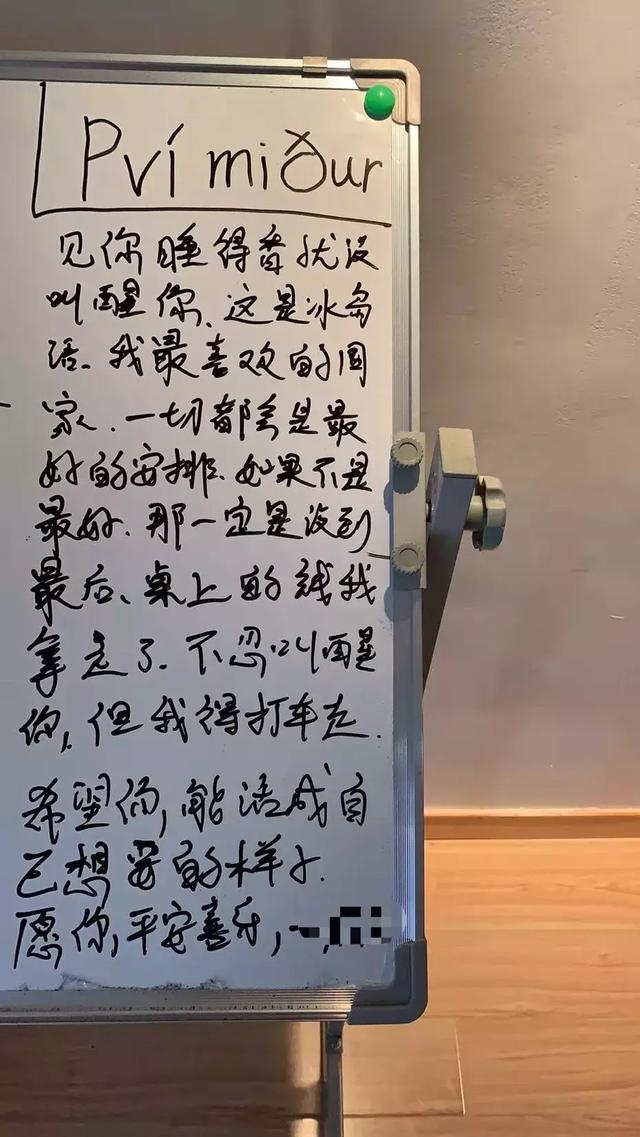 Pví miður
见你睡得香就没
叫醒你、这是冰岛
语、我最喜欢的国
家、一切都会是最
好的安排、如果不是
最好、那一定是没到
最后、桌上的钱我
拿走了、不忍叫醒
你,但我得打车走.
希望你,能活成自
己想要的样子.
愿你,平安喜乐,一